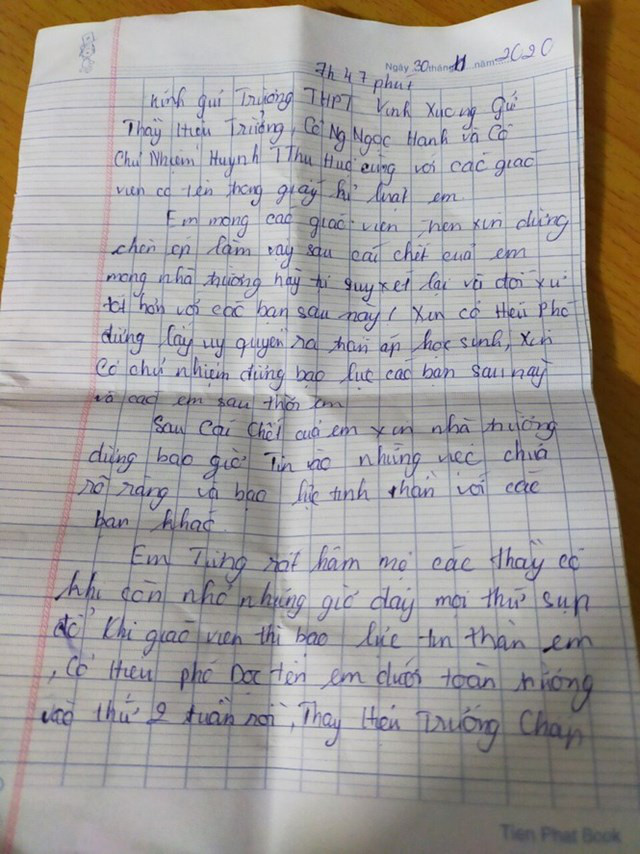 Ngày 30 tháng 11 năm 2020
7h 47 phút
Kính gửi Trường THPT Vĩnh Xương Gửi
Thầy Hiệu Trưởng, Cô Ng Ngọc Hạnh và Cô
Chủ Nhiệm Huỳnh T Thu Huệ cùng với các giáo
viên có tên trong giấy kỉ luật em
Em mong các giáo viên nên xin đừng
chèn ép làm vậy sau cái chết của em
mong nhà trường hãy tự quyết lại và đối xử
tốt hơn với các bạn sau này! Xin cô Hiệu Phó
đừng lấy uy quyền ra trấn áp học sinh, xin
Cô chủ nhiệm đừng bạo lực các bạn sau này
và các em sau thời em
Sau Cái Chết của em xin nhà trường
đừng bao giờ Tin vào những việc chưa
rõ ràng và bạo lực tinh thần với các
bạn khác.
Em Từng rất hâm mộ các thầy cô
khi còn nhỏ nhưng giờ đây mọi thứ sụp
đổ Khi giáo viên thì bạo lực tin thần em
, Cô Hiệu phó Đọc tên em dưới toàn trường
vào thứ 2 tuần rồi, Thầy Hiệu Trưởng Chấp
Tien Phat Book